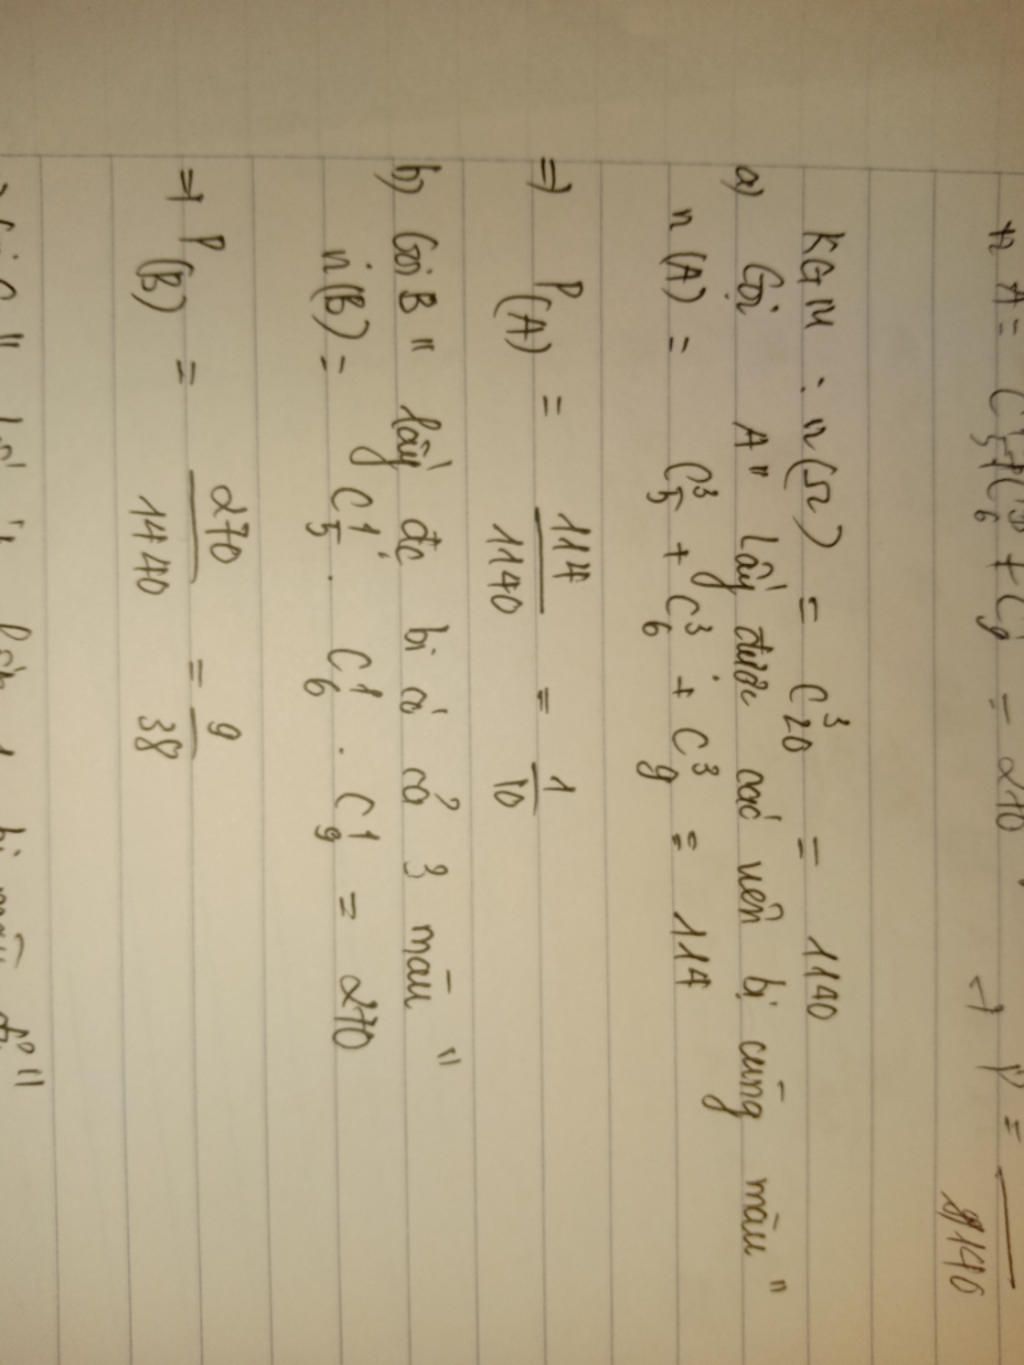 n A = C₅¹ + C₆³ + C₉ = 210 → P = 1140
KGM : n(Ω) = C³₂₀ = 1140
a) Gọi A" lấy được các viên bi cùng màu"
n(A) = C³₅ + C³₆ + C³₉ = 114
=> P(A) = 114/1140 = 1/10
b) Gọi B " lấy đc bi có cả 3 màu "
n(B) = C¹₅ . C¹₆ . C¹₉ = 270
=> P(B) = 270/1140 = 9/38